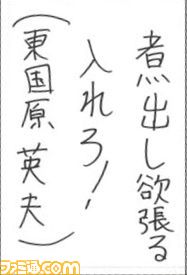 煮出し欲張る
入れろ！
（東国原 英夫）
ファミ通.com